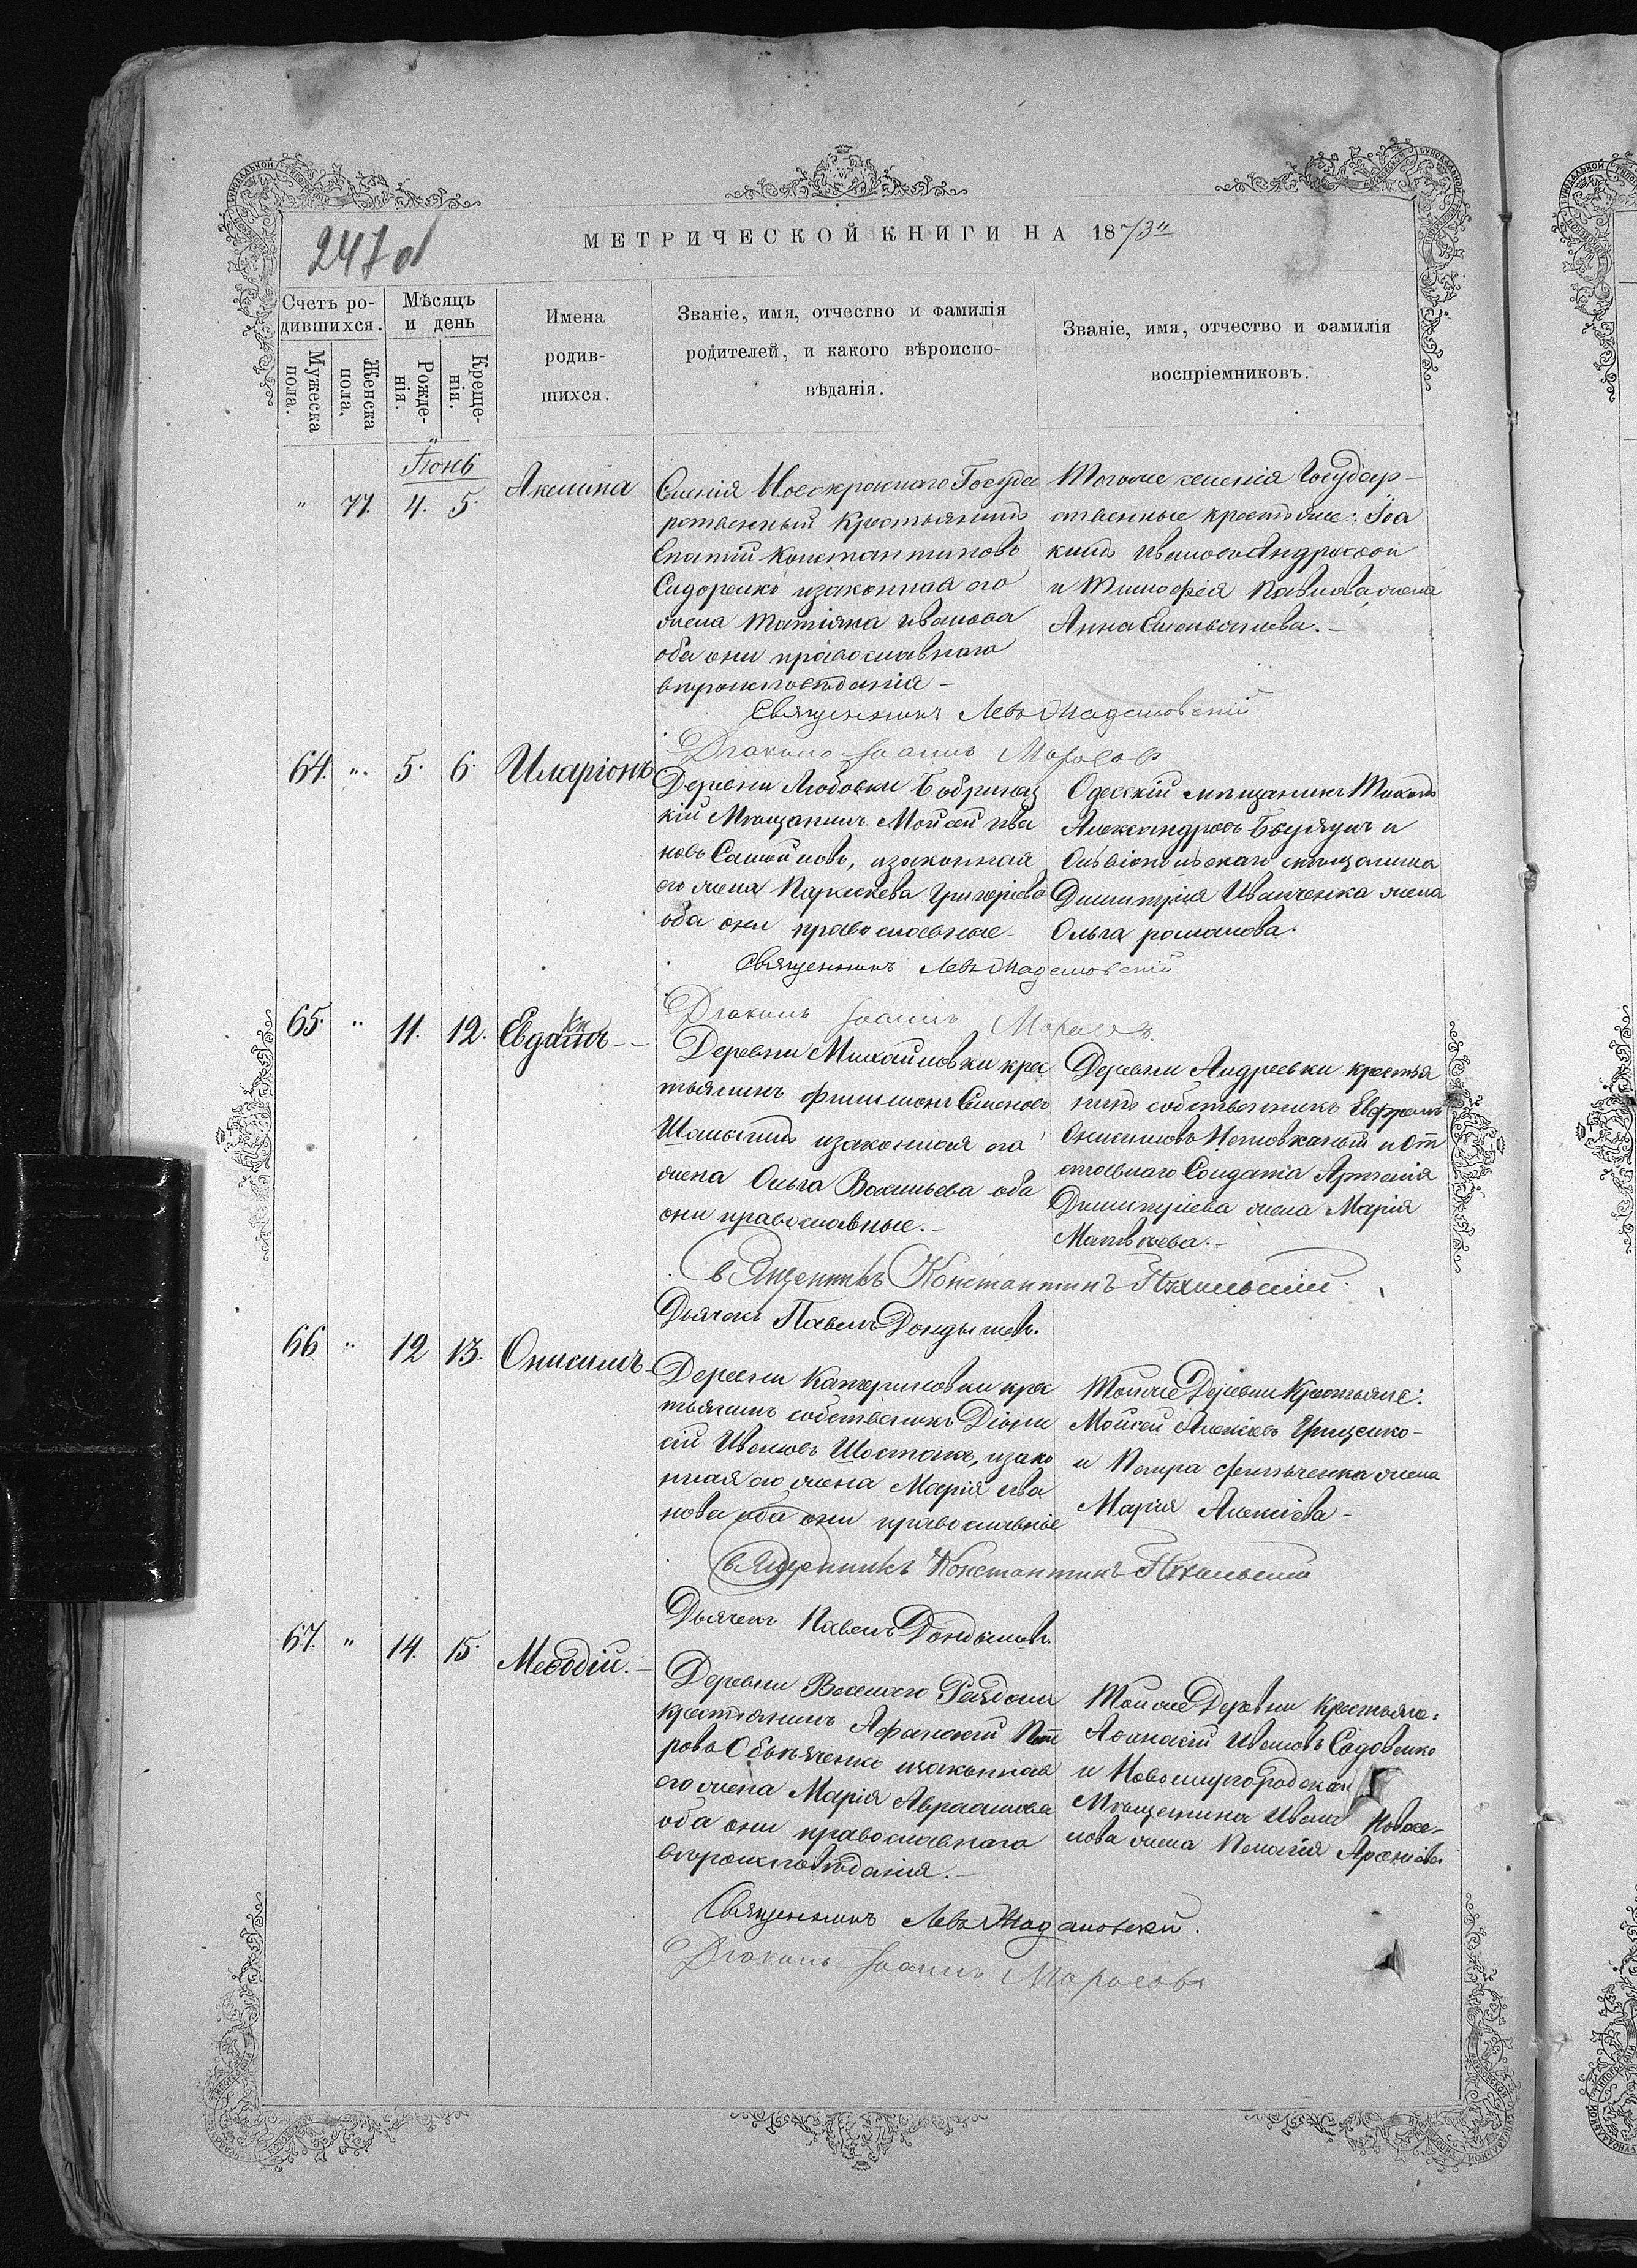 МЕТРИЧЕСКОЙ КНИГИ НА 1873
247 об
Счетъ ро-
дившихся.
Мужеска пола.
Женска пола,
Мѣсяцъ
и день
Рожде-
нія.
Креще-
нія.
Имена
родив-
шихся.
Званіе, имя, отчество и фамилія
родителей, и какого вѣроиспо-
вѣданія.
Званіе, имя, отчество и фамилія
воспріемниковъ.
Іюнь
" 77. 4. 5. Акилина
Селенія Новокраснаго Госуда
рственный Крестьянинъ
Евпатій Константиновъ
Сидоренко изаконная его
жена Татіяна Иванова
оба они православнаго
вѣроисповѣданія –
Тогоже селенія Государ–
ственные крестьяне: Іоа
кимъ Ивановъ
и Тимофѣя Павлова жена
Анна Емельянова. –
Священникъ Левъ
Діаконъ Іоаннъ Моросовъ
64. " 5. 6. Иларіонъ
Деревни Любовки Бобринец
кій Мѣщанинъ Мойсей Ива
новъ Самойловъ, изаконная
его жена Параскева Григоріева
оба они православные.
Одесскій мѣщанинъ
Александровъ и
Ольвіопольскаго мѣщанина
Димитрія Иванченка жена
Ольга романова.
Священникъ Левъ
Діаконъ Іоаннъ Моросовъ.
65. " 11. 12. Евдокимъ –
Деревни Михайловки крес
тьянинъ Филимонъ Семеновъ
изаконная его
жена Ольга Васильева оба
они православные. –
Деревни Андреевки крестья
нинъ собственникъ Евфремъ
Онисимовъ и От
ставнаго Солдата Артемія
Димитріева жена Марія
Матвѣева. –
Священникъ Константинъ
Дьячекъ Павелъ
66 " 12 13. Онисимъ –
Деревни Катериновки крес
тьянинъ собственникъ Діони
сій Ивановъ Шостакъ, изако
нная его жена Марія Ива
нова оба они православніе
Тойже Деревни Крестьяне:
Мойсей Алексѣевъ Грищенко –
и Петра Фильченка жена
Марія Алексіева –
Священникъ Константинъ
Дьячекъ Павелъ
67. " 14. 15. Меѳодій. –
Деревни Веселаго Раздола
крестьянинъ Афанасій Пет
ровъ изаконная
его жена Марія Авраамова
оба они православнаго
вѣроисповѣданія. –
Тойже Деревни Крестьяне:
Аѳанасій Ивановъ Садовенко
и Новомиргородскаго
Мѣщанина Ивана Новосе–
лова жена Пелагія Арсеніева
Священникъ Левъ
Діаконъ Іоаннъ Моросовъ